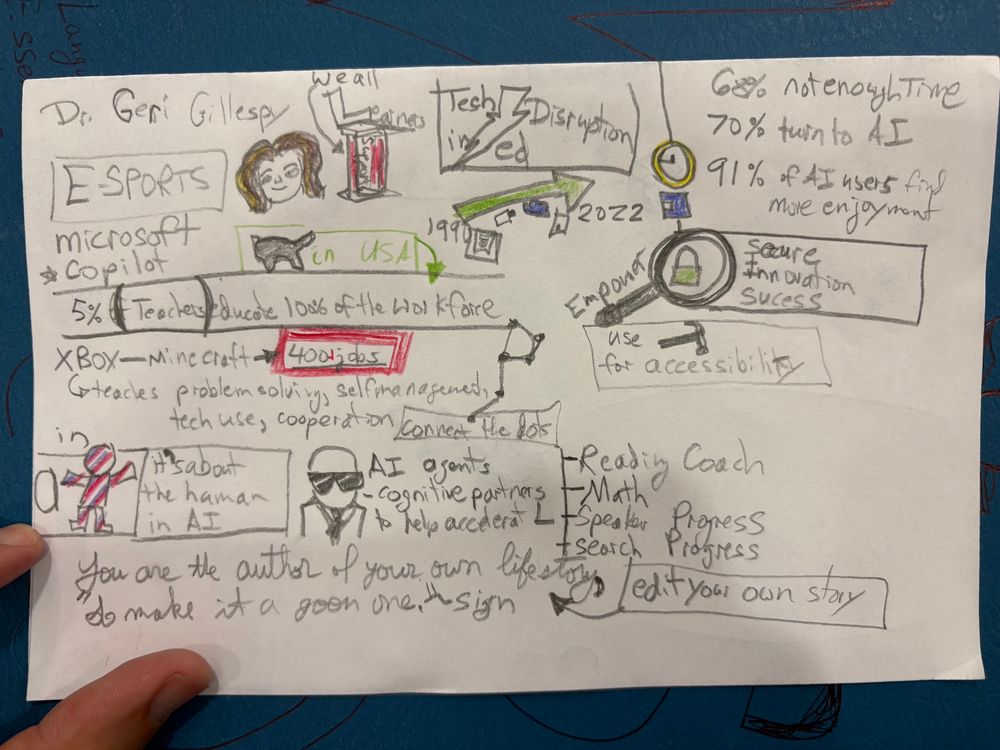 Dr. Geri Gillespy
we all
Learners
Tech Disruption
in ed
68% not enough Time
70% turn to AI
91% of AI users find
more enjoyment
E-SPORTS
1990
2022
microsoft
Copilot
in USA
Empower
secure
Innovation
Sucess
5% (Teachers) educate 100% of the workforce
use
for accessibility
XBOX—Minecraft → 400+ jobs
teaches problem solving, self managemed,
tech use, cooperation
connect the dots
in
a
it's about
the human
in AI
AI agents
- cognitive partners
to help accelerat
Reading Coach
Math
Speaker Progress
search Progress
You are the author of your own life story,
make it a goon one." sign
edit your own story